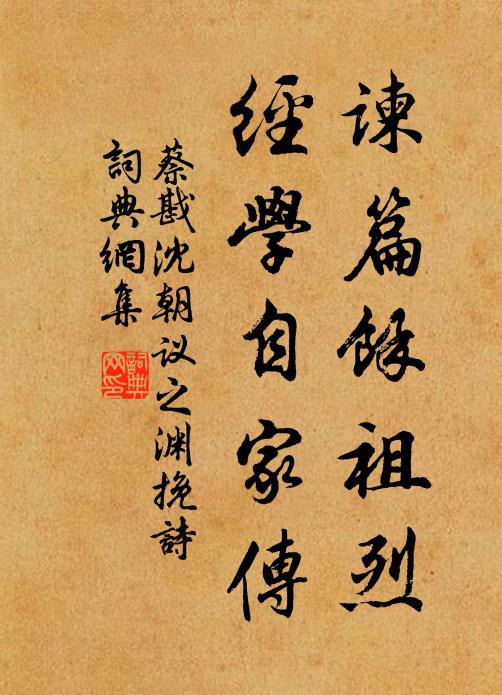 諫篇餘祖烈
經學自家傳
蔡戡沈朝议之渊挽詩
詞典網集
詞典网印